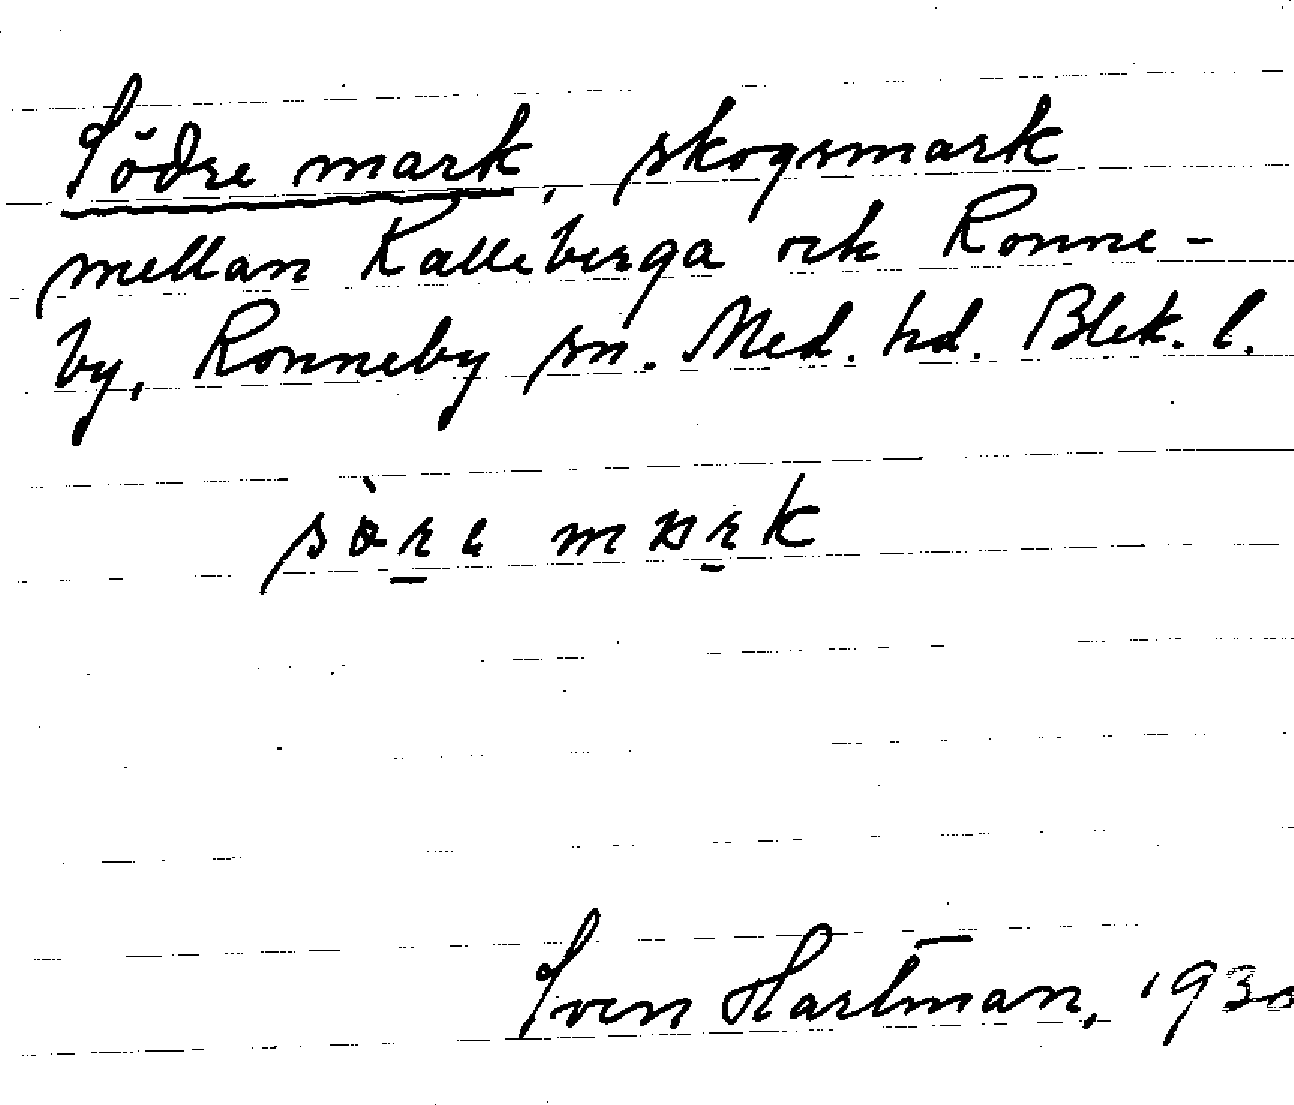 Södre mark, skogsmark
mellan Kalleberga och Ronne-
by, Ronneby sn. Med. hd. Blek. l.
Sven Hartman, 193